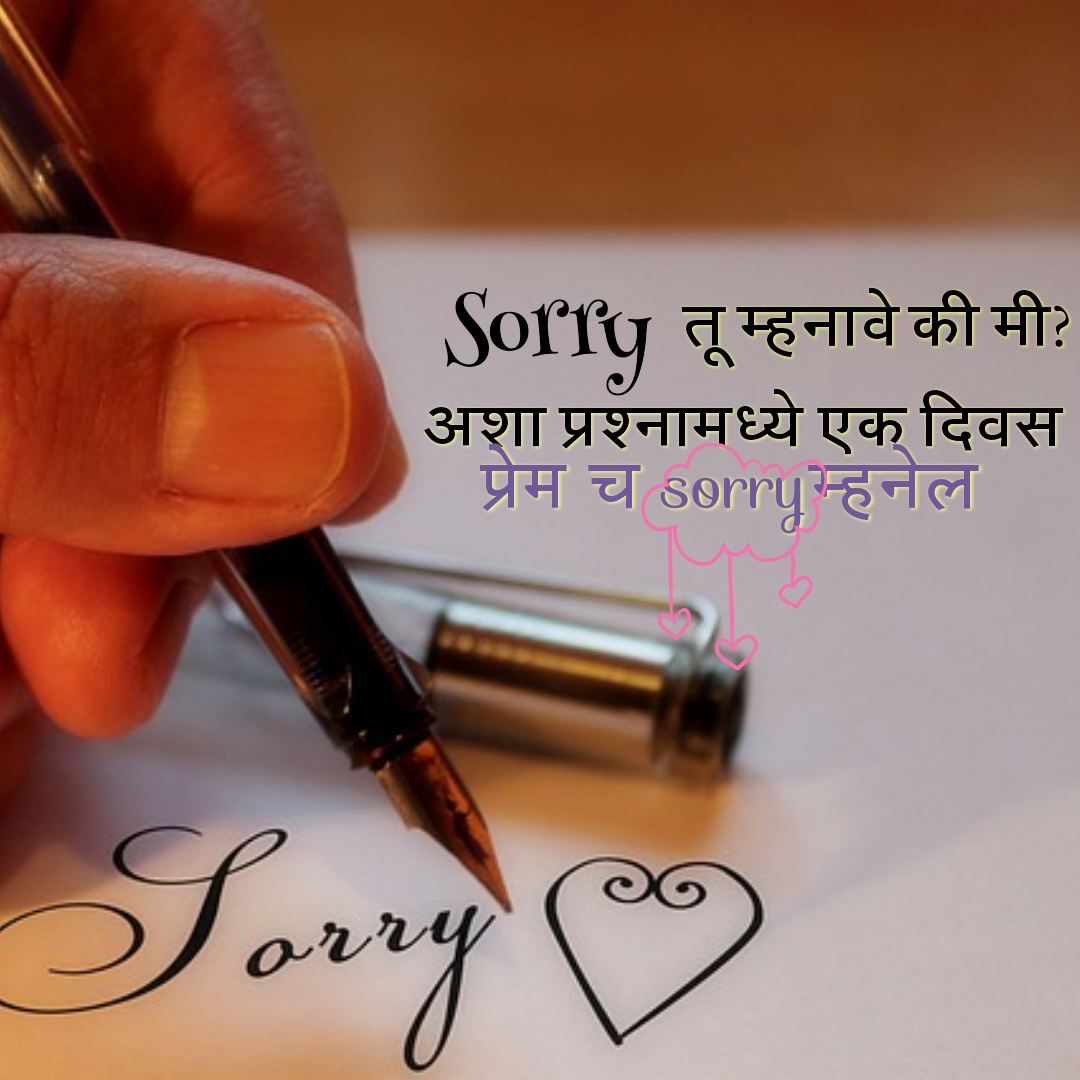 Sorry तू म्हनावे की मी?
अशा प्रश्नामध्ये एक दिवस
प्रेम च sorry म्हनेल
Sorry